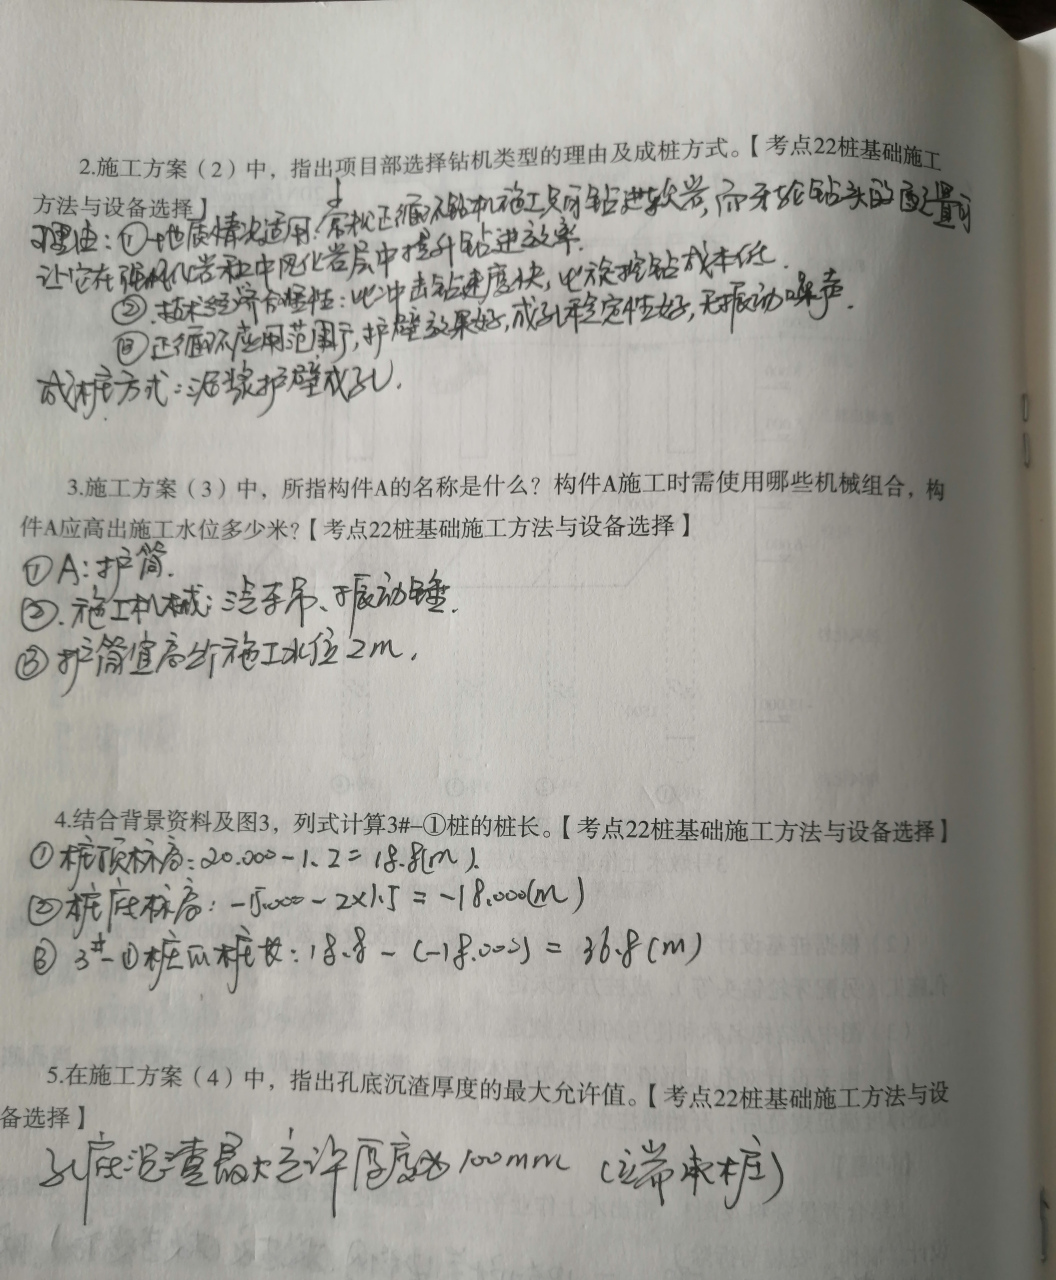 2.施工方案（2）中，指出项目部选择钻机类型的理由及成桩方式。【考点22桩基础施工
方法与设备选择】
理由：①地质情况适用：常规正循环钻机施工只可钻进软岩，而牙轮钻头的配置可
让它在强风化岩和中风化岩层中提升钻进效率.
②.技术经济合理性：比冲击钻速度快，比旋挖钻成本低.
③正循环应用范围广，护壁效果好，成孔稳定性好，无振动噪声.
成桩方式：泥浆护壁成孔.
3.施工方案（3）中，所指构件A的名称是什么？构件A施工时需使用哪些机械组合，构
件A应高出施工水位多少米?【考点22桩基础施工方法与设备选择】
①A:护筒.
②.施工机械：汽车吊、振动锤.
③护筒宜高于施工水位2m.
4.结合背景资料及图3，列式计算3#-①桩的桩长。【考点22桩基础施工方法与设备选择】
①桩顶标高:20.000-1.2=18.8(m).
②桩底标高：-15.000-2×1.5=-18.000(m)
③ 3#-①桩的桩长：18.8-(-18.000)=36.8(m)
5.在施工方案（4）中，指出孔底沉渣厚度的最大允许值。【考点22桩基础施工方法与设
备选择】
孔底沉渣最大允许厚度为100mm (端承桩)